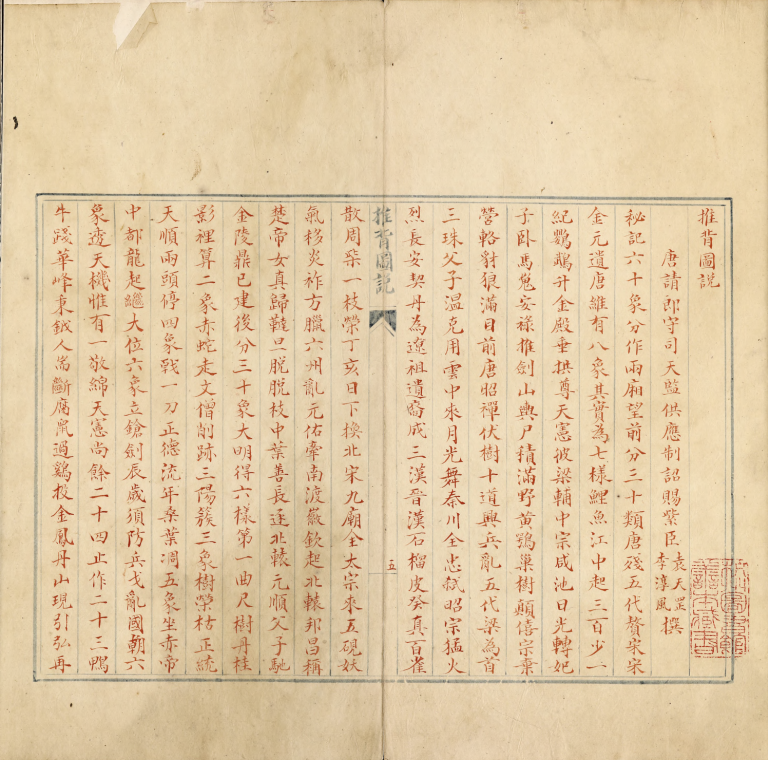 推背圖說
唐請郎守司天監供應制詔賜紫臣袁天罡李淳風撰
秘記六十象分作兩廂望前分三十類唐殘五代贅宋宋
金元遺唐維有八象其實為七樣鯉魚江中起三百少一
紀鸚鵡升金殿垂拱尊天憲彼梁輔中宗咸池日光轉妃
子卧馬嵬安祿推劍山輿尸積滿野黃鶚巢樹顛僖宗棄
營輅豺狼滿日前唐昭禪伏樹十道興兵亂五代梁為首
三珠父子溫克用雲中來月光舞秦川全忠弒昭宗猛火
烈長安契丹為遼祖遺裔成三漢晉漢石榴皮癸真百雀
推背圖說
五
散周柴一枝榮丁亥日下換北宋九廟全太宗來五硯妖
氣移炎祚方臘六州亂元佑牽南渡徽欽起北轅邦昌稱
楚帝女真歸韃旦脫脫枝中葉善長逐北轅元順父子馳
金陵鼎已建後分三十象大明得六樣第一曲尺樹丹桂
影裡算二象赤蛇走文僧削跡三陽發三象樹榮枯正統
天順兩頭停四象戟一刀正德流年桑葉凋五象坐赤帝
中都龍起繼大位六象立鎗劍辰歲須防兵戈亂國朝六
象透天機惟有一敬綿天憲尚餘二十四止作二十三鴨
牛踐華峰東鉞人崙斷腐鼠過鷄投金鳳丹山現引弘再